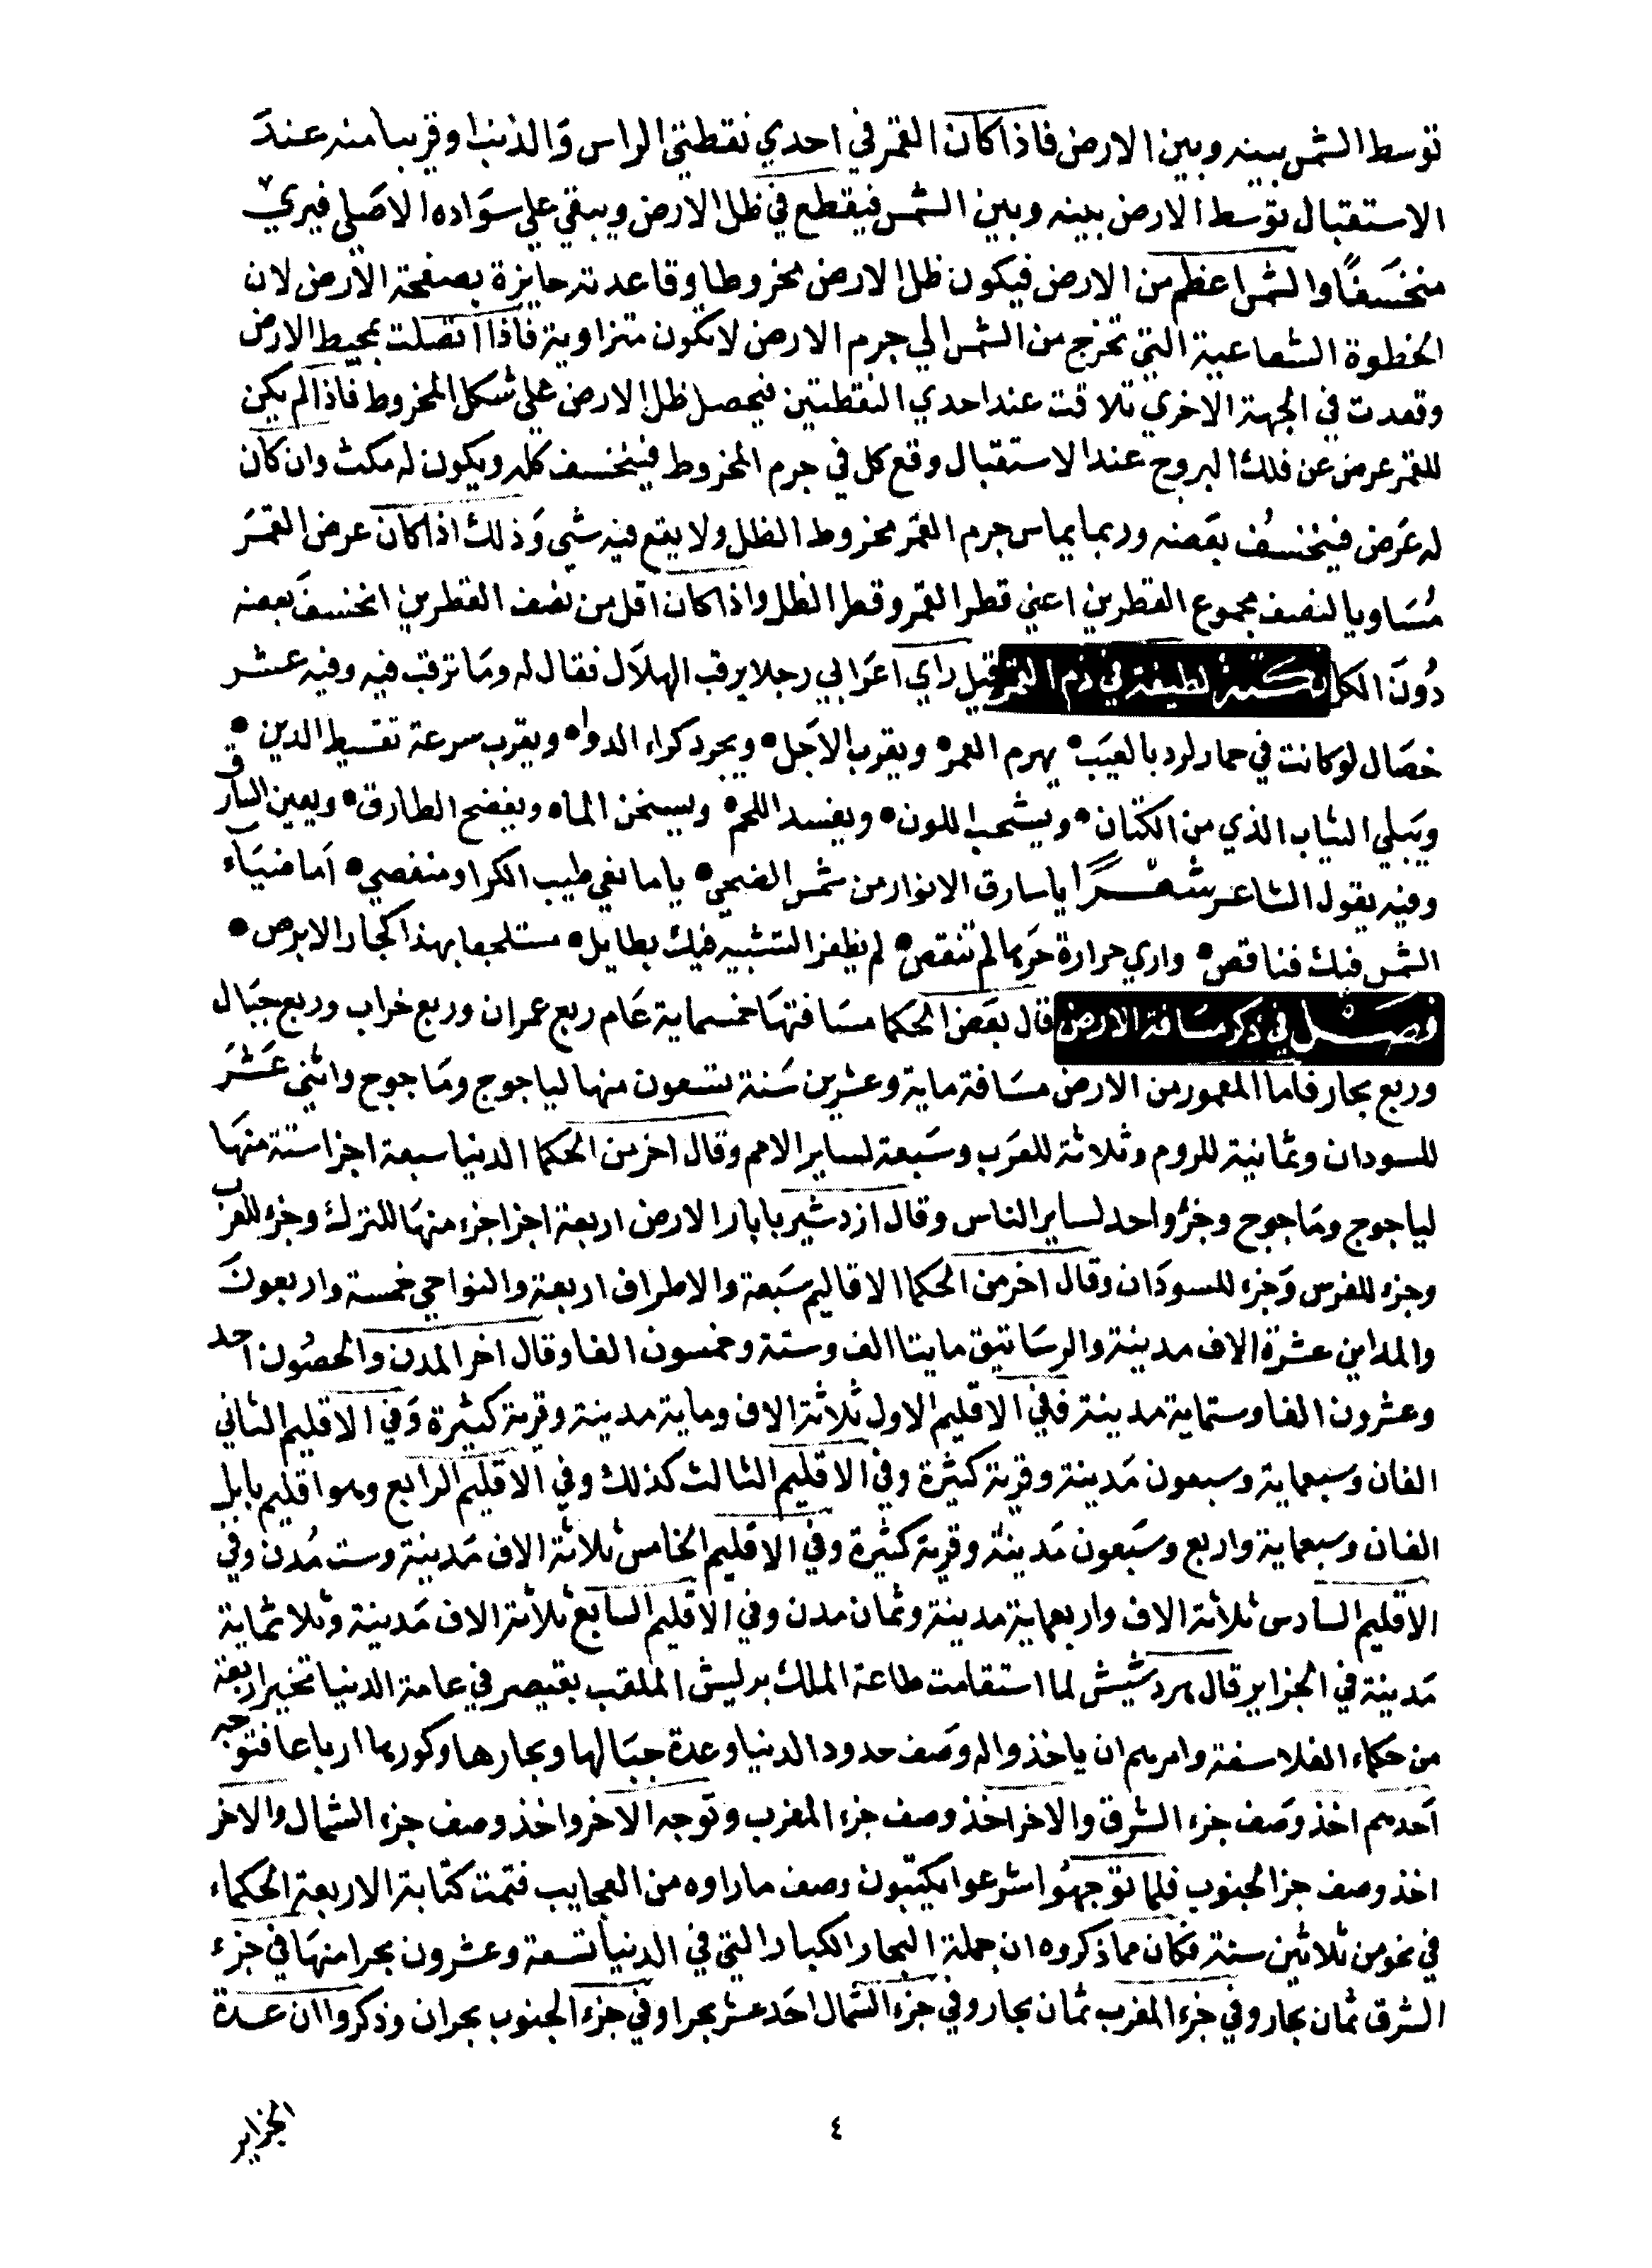 توسط الشمس بينه وبين الارض فاذا كان القمر في احدي نقطتي الراس والذنب او قريبا منه عند
الاستقبال توسط الارض بينه وبين الشمس فيقطع في ظل الارض ويبقي علي سواده الاصلي فيري
منخسفًا والشمس اعظم من الارض فيكون ظل الارض مخروطا وقاعدته حايزة بصفحة الارض لان
الخطوة الشعاعية التي تخرج من الشمس الي جرم الارض لا تكون متزاوية فاذا اتصلت بمحيط الارض
وتعدت في الجهة الاخري تلاقت عند احدي النقطتين فيحصل ظل الارض علي شكل المخروط فاذا لم يكن
للقمر عرض عن فلك البروج عند الاستقبال وقع كل في جرم المخروط فينخسف كله ويكون له مكث وان كان
له عرض فينخسف بعضه وربما يماس جرم القمر مخروط الظل ولا يقع فيه شي وذلك اذا كان عرض القمر
مساويا لنصف مجموع القطرين اعني قطر القمر وقطر الظل واذا كان اقل من نصف القطرين انخسف بعضه
دون الكل نكتة لطيفة في ذم القمر قيل راي اعرابي رجلا يرقب الهلال فقال له وما ترقب فيه وفيه عشر
خصال لو كانت في حمار لرد بالعيب يهرم العمر ويقرب الاجل ويجرد كراء الدواه ويقرب سرعة تقسيط الدين
ويبلي الثياب الذي من الكتان ويشحب اللون ويفسد اللحم ويسخن الماه ويفضح الطارق ويعين السارق
وفيه يقول الشاعر شعرًا يا سارق الانوار من شمس الضحي يا مانغي طيب الكرا ومنغصي اما ضياء
الشمس فيك فناقص واري حرارة حرها لم تنقص لم يظفر التشبيه فيك بطايل مستلجعا بهذا كجار الابرص
فصل في ذكر مسافة الارض قال بعض الحكما مسافتها خمسماية عام ربع عمران وربع خراب وربع جبال
وربع بحار فاما المعمور من الارض مسافة ماية وعشرين سنة تسعون منها لياجوج وماجوج واثني عشر
للسودان وثمانية للروم وثلاثة للعرب وسبعة لساير الامم وقال اخر من الحكما الدنيا سبعة اجزا ستة منها
لياجوج وماجوج وجزؤ واحد لساير الناس وقال ازدشير بابار الارض اربعة اجزا جزء منها للترك وجزء للعرب
وجزء للفرس وجزء للسودان وقال اخر من الحكما الاقاليم سبعة والاطراف اربعة والنواحي خمسة واربعون
والمداين عشرة الاف مدينة والرساتيق مايتا الف وستة وخمسون الفا وقال اخر المدن والحصون احد
وعشرون الفا وستماية مدينة ففي الاقليم الاول ثلاثة الاف وماية مدينة وقرية كثيرة وفي الاقليم الثاني
الفان وسبعماية وسبعون مدينة وقرية كثيرة وفي الاقليم الثالث كذلك وفي الاقليم الرابع وهو اقليم بابل
الفان وسبعماية واربع وسبعون مدينة وقرية كثيرة وفي الاقليم الخامس ثلاثة الاف مدينة وست مدن وفي
الاقليم السادس ثلاثة الاف واربعماية مدينة وثمان مدن وفي الاقليم السابع ثلاثة الاف مدينة وثلاثماية
مدينة في الجزاير قال هردشيش لما استقامت طاعة الملك بوليش الملقب بقيصر في عامة الدنيا تخير اربعة
من حكماء الفلاسفة وامرهم ان ياخذوا له وصف حدود الدنيا وعدة جبالها وبحارها وكورها ارباعا فتوجه
احدهم اخذ وصف جزء الشرق والاخر اخذ وصف جزء المغرب وتوجه الاخر واخذ وصف جزء الشمال والاخر
اخذ وصف جزا الجنوب فلما توجهوا شرعوا يكتبون وصف ما راوه من العجايب فتمت كتابة الاربعة الحكماء
في نحو من ثلاثين سنة فكان مما ذكروه ان جملة البحار الكبار التي في الدنيا تسعة وعشرون بحرا منها في جزء
الشرق ثمان بحار وفي جزء المغرب ثمان بحار وفي جزء الشمال احد عشر بحرا وفي جزء الجنوب بحران وذكروا ان عدة
الجزاير
٤